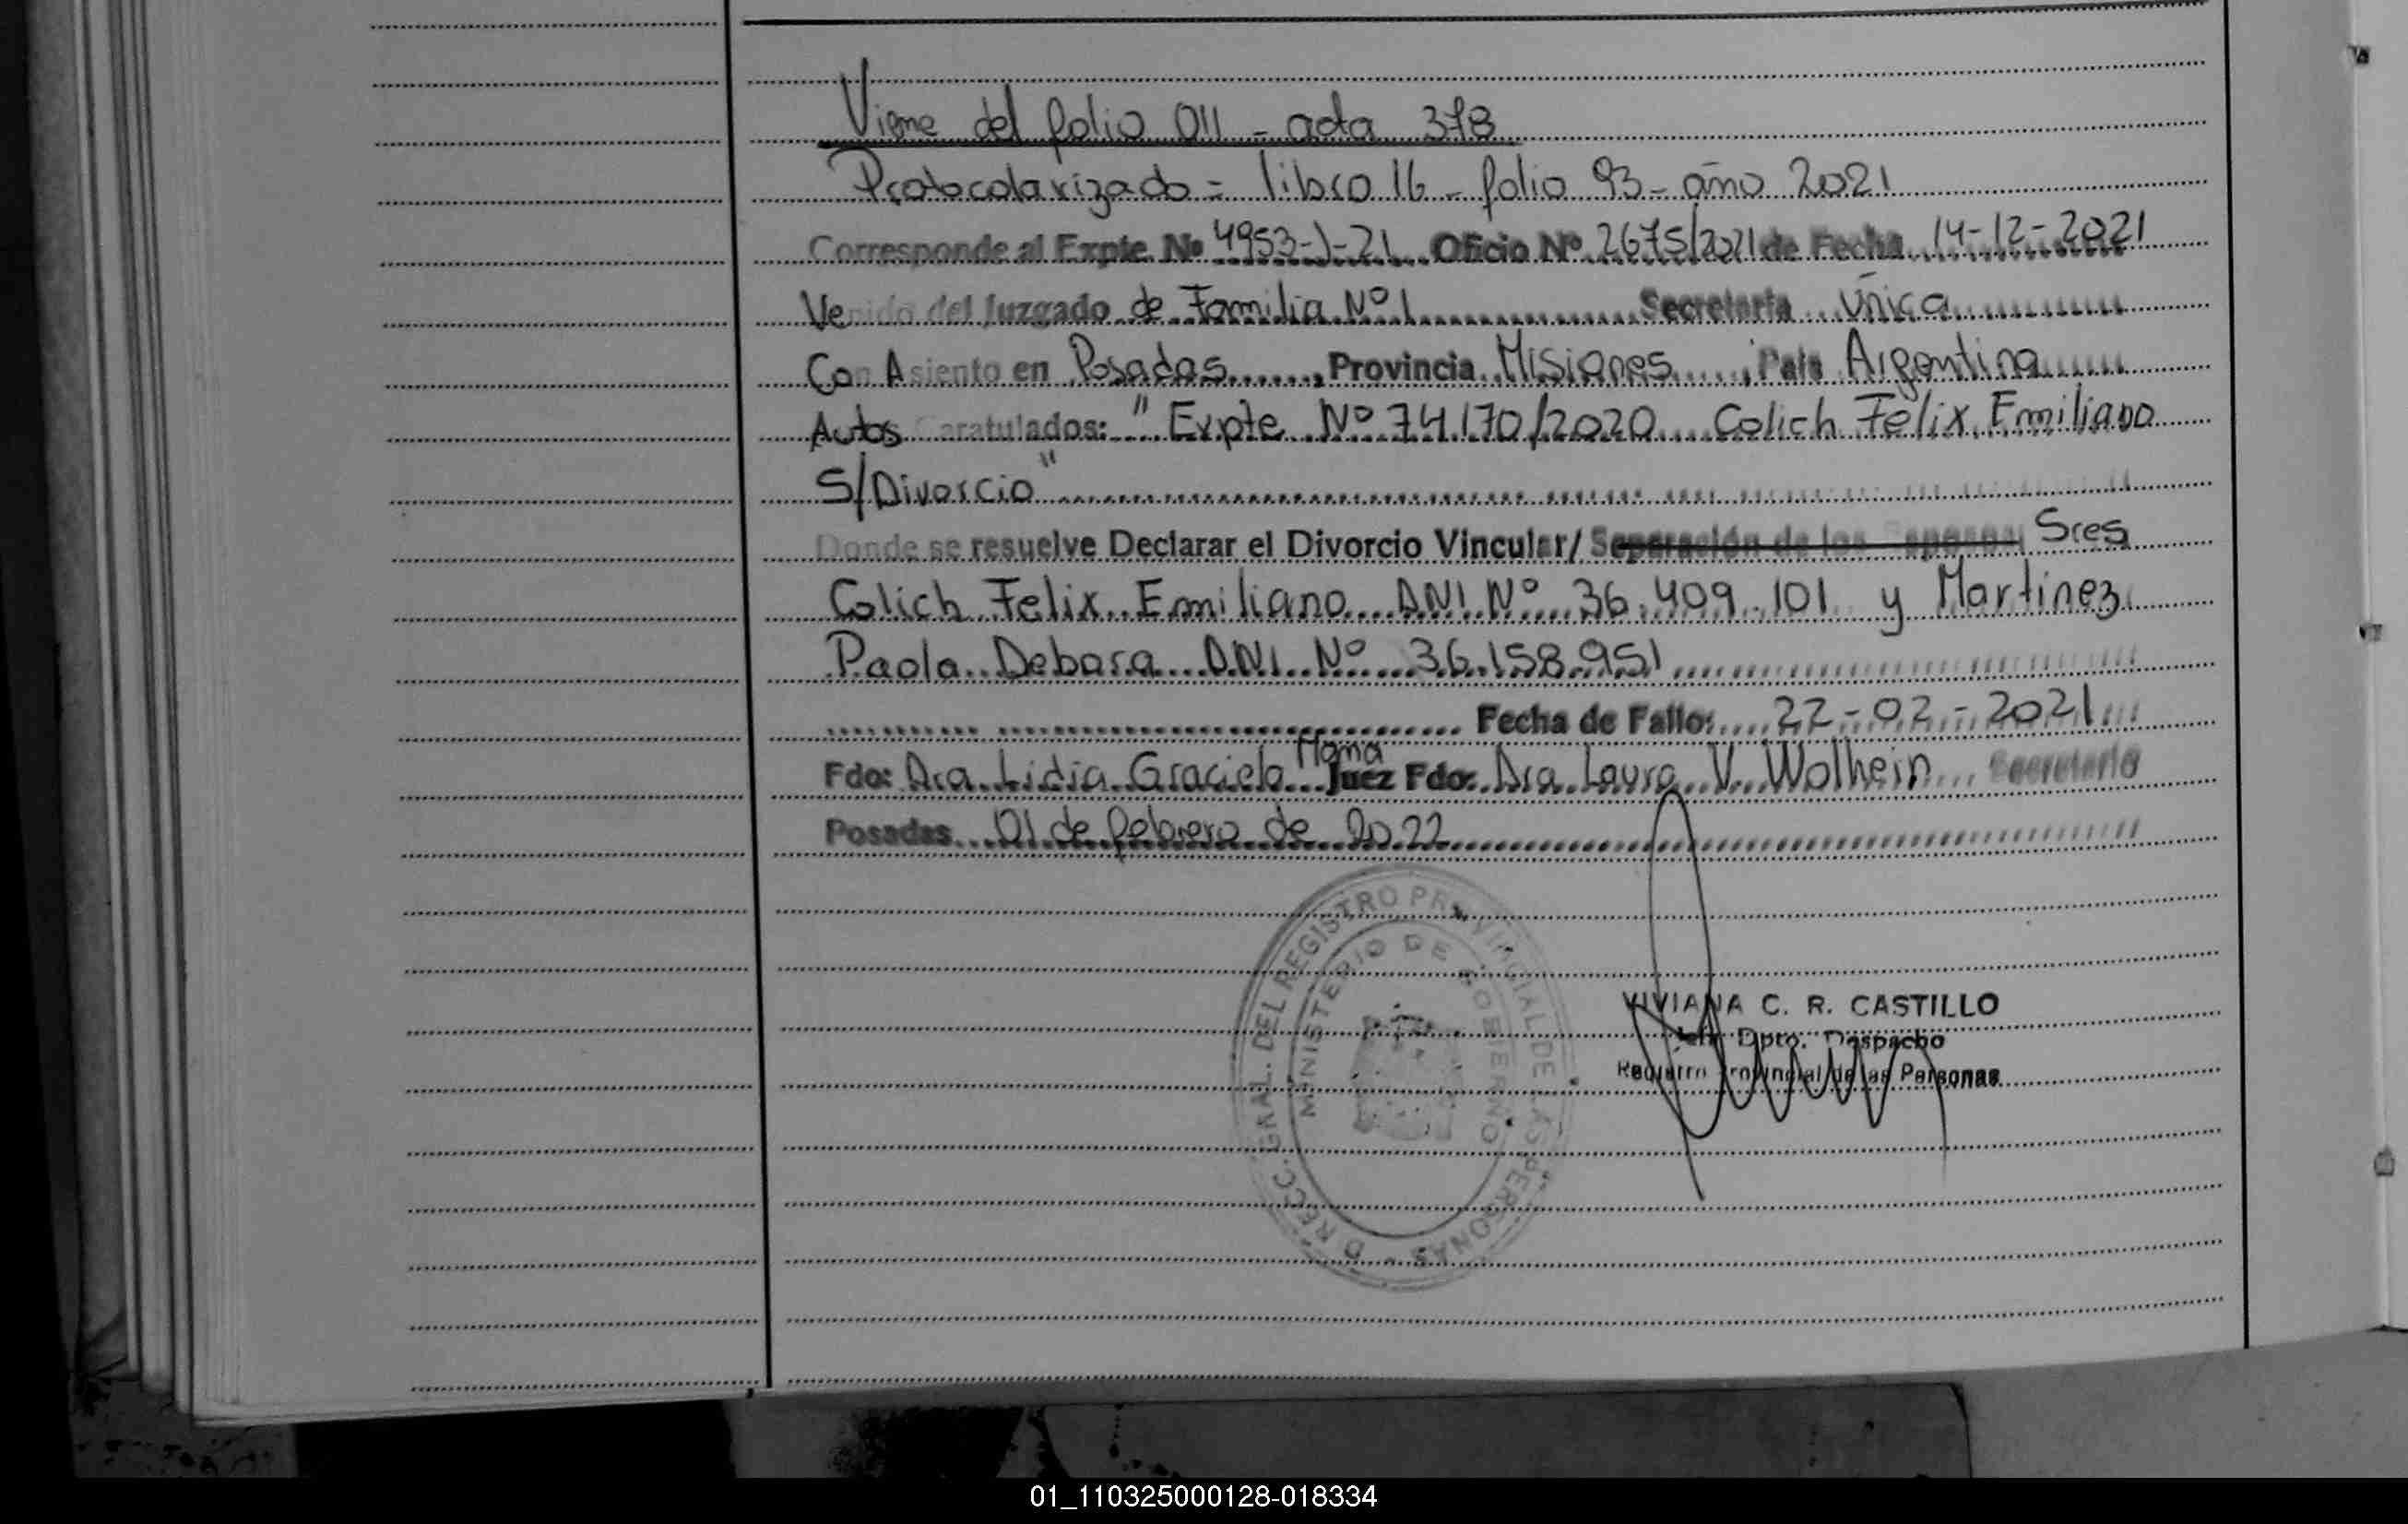 Viene del folio 011 - acta 378
Protocolarizado = libro 16 - folio 93 - año 2021
Corresponde al Expte. Nº 4953-J-21 Oficio Nº 2675/2021 de Fecha 14-12-2021
Venido del Juzgado de Familia Nº 1 Secretaría Única
Con Asiento en Posadas, Provincia Misiones, País Argentina
Autos Caratulados: "Expte Nº 74170/2020 Colich Felix Emiliano
S/Divorcio"
Donde se resuelve Declarar el Divorcio Vincular/ Separación de los Esposos Sres
Colich Felix Emiliano DNI Nº 36.409.101 y Martinez
Paola Debora DNI Nº 36.158.951
Fecha de Fallo: 22-02-2021
Fdo: Dra Lidia Graciela Moma Juez Fdo: Dra Laura V. Wolhein Secretario
Posadas 01 de febrero de 2022
DIRECC. GRAL. DEL REGISTRO PROVINCIAL DE LAS PERSONAS
MINISTERIO DE GOBIERNO
VIVIANA C. R. CASTILLO
Jefe Dpto. Despacho
Registro Provincial de las Personas
01_110325000128-018334